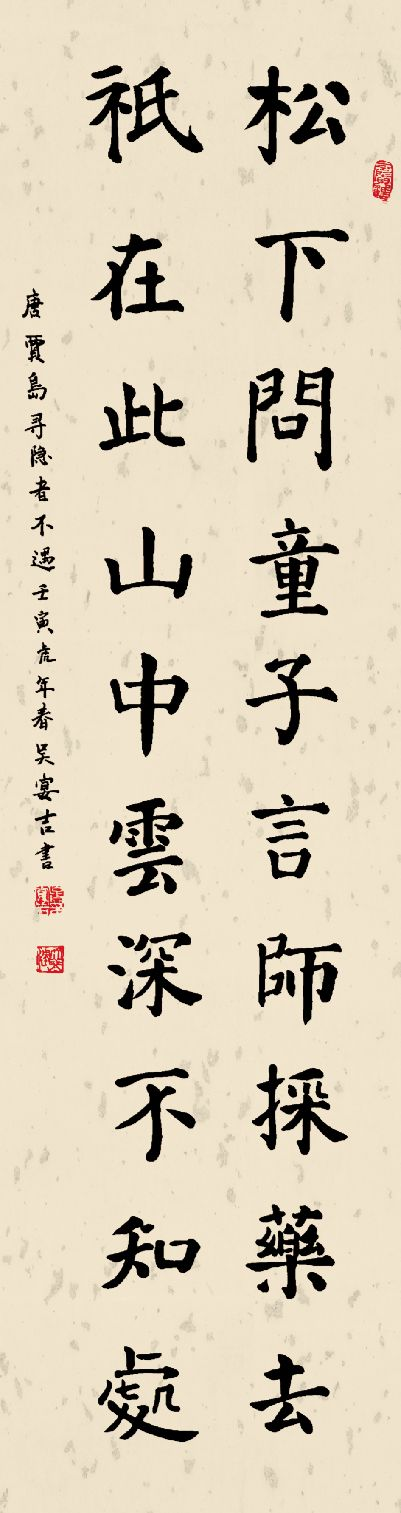 松下問童子言師採藥去
祇在此山中雲深不知處
唐賈島寻隐者不遇壬寅虎年春吴宴吉書